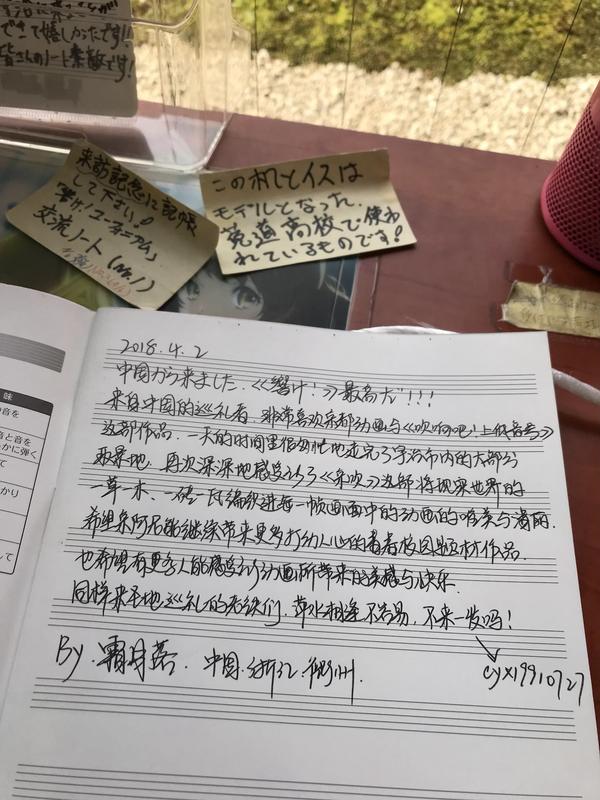 できて嬉しかったです!!
皆さんのノート素敵です!
来訪記念に記帳
して下さい!
「響け!ユーフォニアム」
交流ノート(No.1)
この机とイスは
モデルとなった
莵道高校で使わ
れているものです!
味
音を
音と音を
かに弾く
て
かり
して
2018.4.2
中国から来ました.《響け!》最高だ!!!
来自中国的巡礼者.非常喜欢京都动画与《吹响吧!上低音号》
这部作品.一天的时间里很匆忙地走完了宇治市内的大部分
取景地.再次深深地感受到了《京吹》这种将现实世界的
一草一木、一砖一瓦编织进每一帧画面中的动画的唯美与清丽.
希望京阿尼能继续带来更多打动人心的青春校园题材作品.
也希望有更多人能感受到动画所带来的美感与快乐.
同样来圣地巡礼的老铁们,萍水相逢不容易,不来一发吗!
cyx19910727
By.霜月 中国.浙江.衢州.